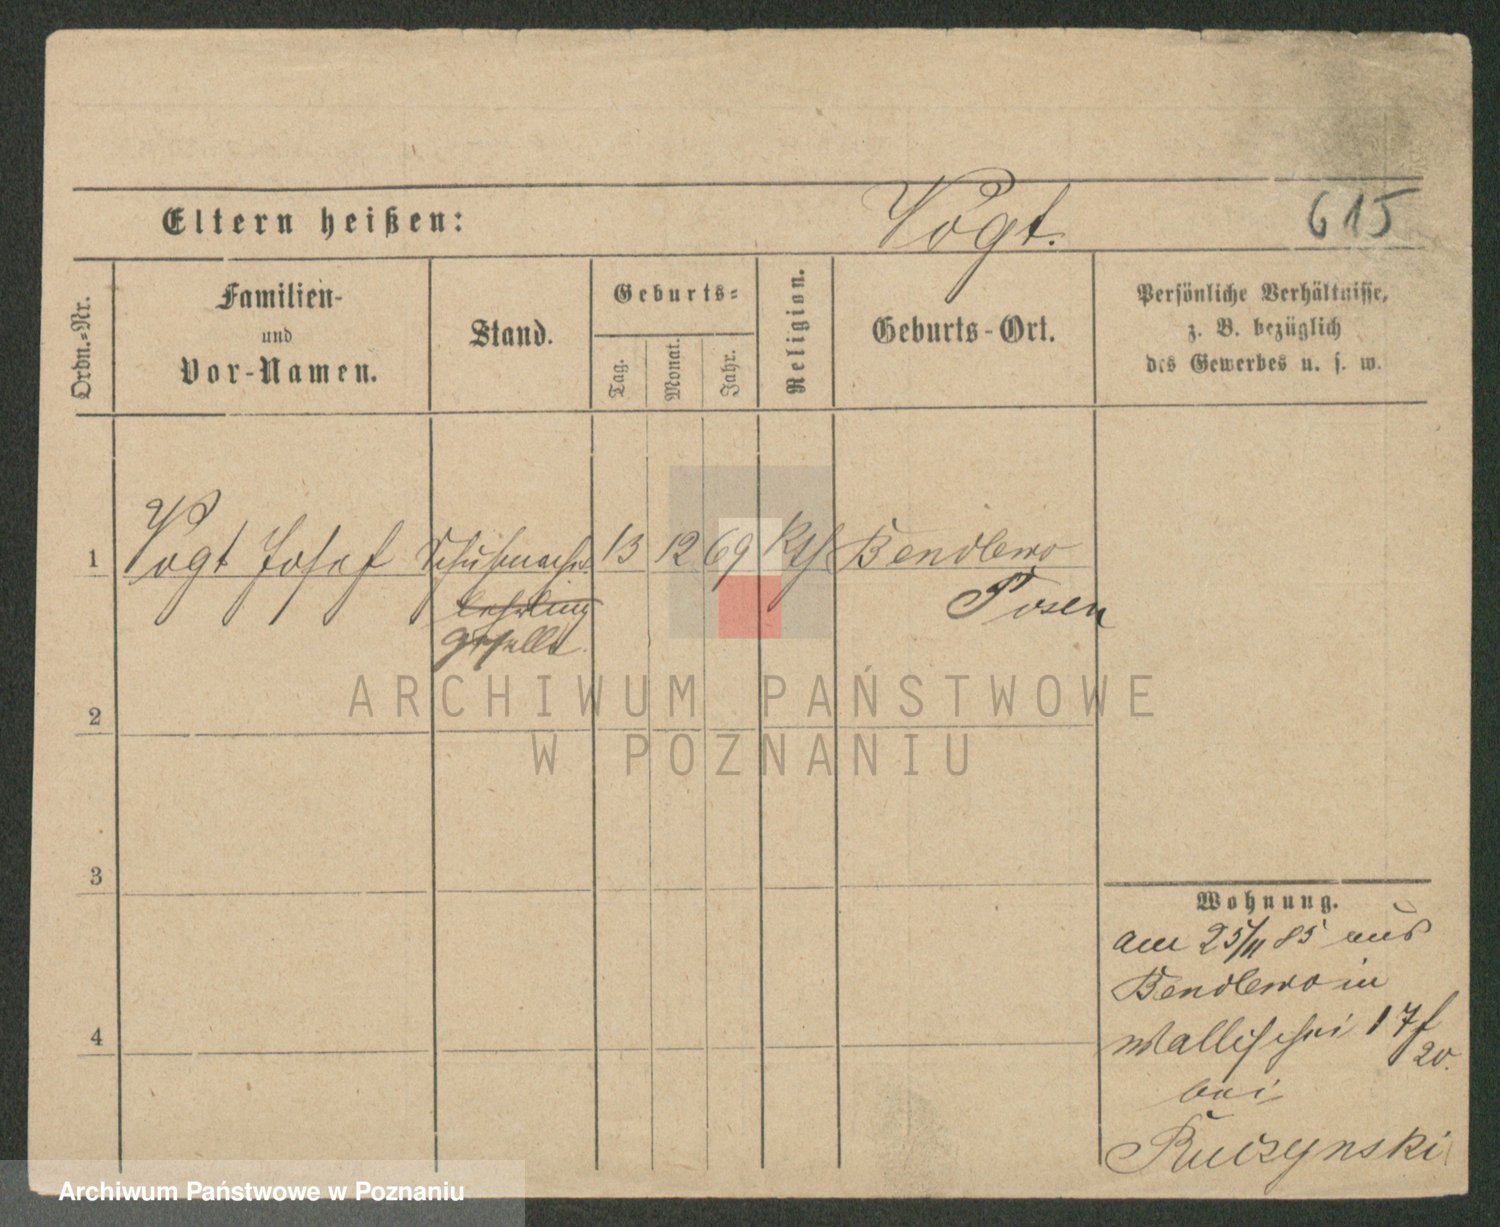 Eltern heißen: Vogt. 615
Ordn.-Nr.
Familien-
und
Vor-Namen.
Stand.
Geburts-
Tag.
Monat.
Jahr.
Religion.
Geburts-Ort.
Persönliche Verhältnisse,
z. B. bezüglich
des Gewerbes u. s. w.
1 Vogt Josef Schuhmacher 13 12 69 kth Bendlewo
lehrling Posen
geselle
2
3
4
Wohnung.
am 25/11 85 aus
Bendlewo in
Wallischei 17/
20.
bei
Ruczynski
ARCHIWUM PAŃSTWOWE
W POZNANIU
Archiwum Państwowe w Poznaniu